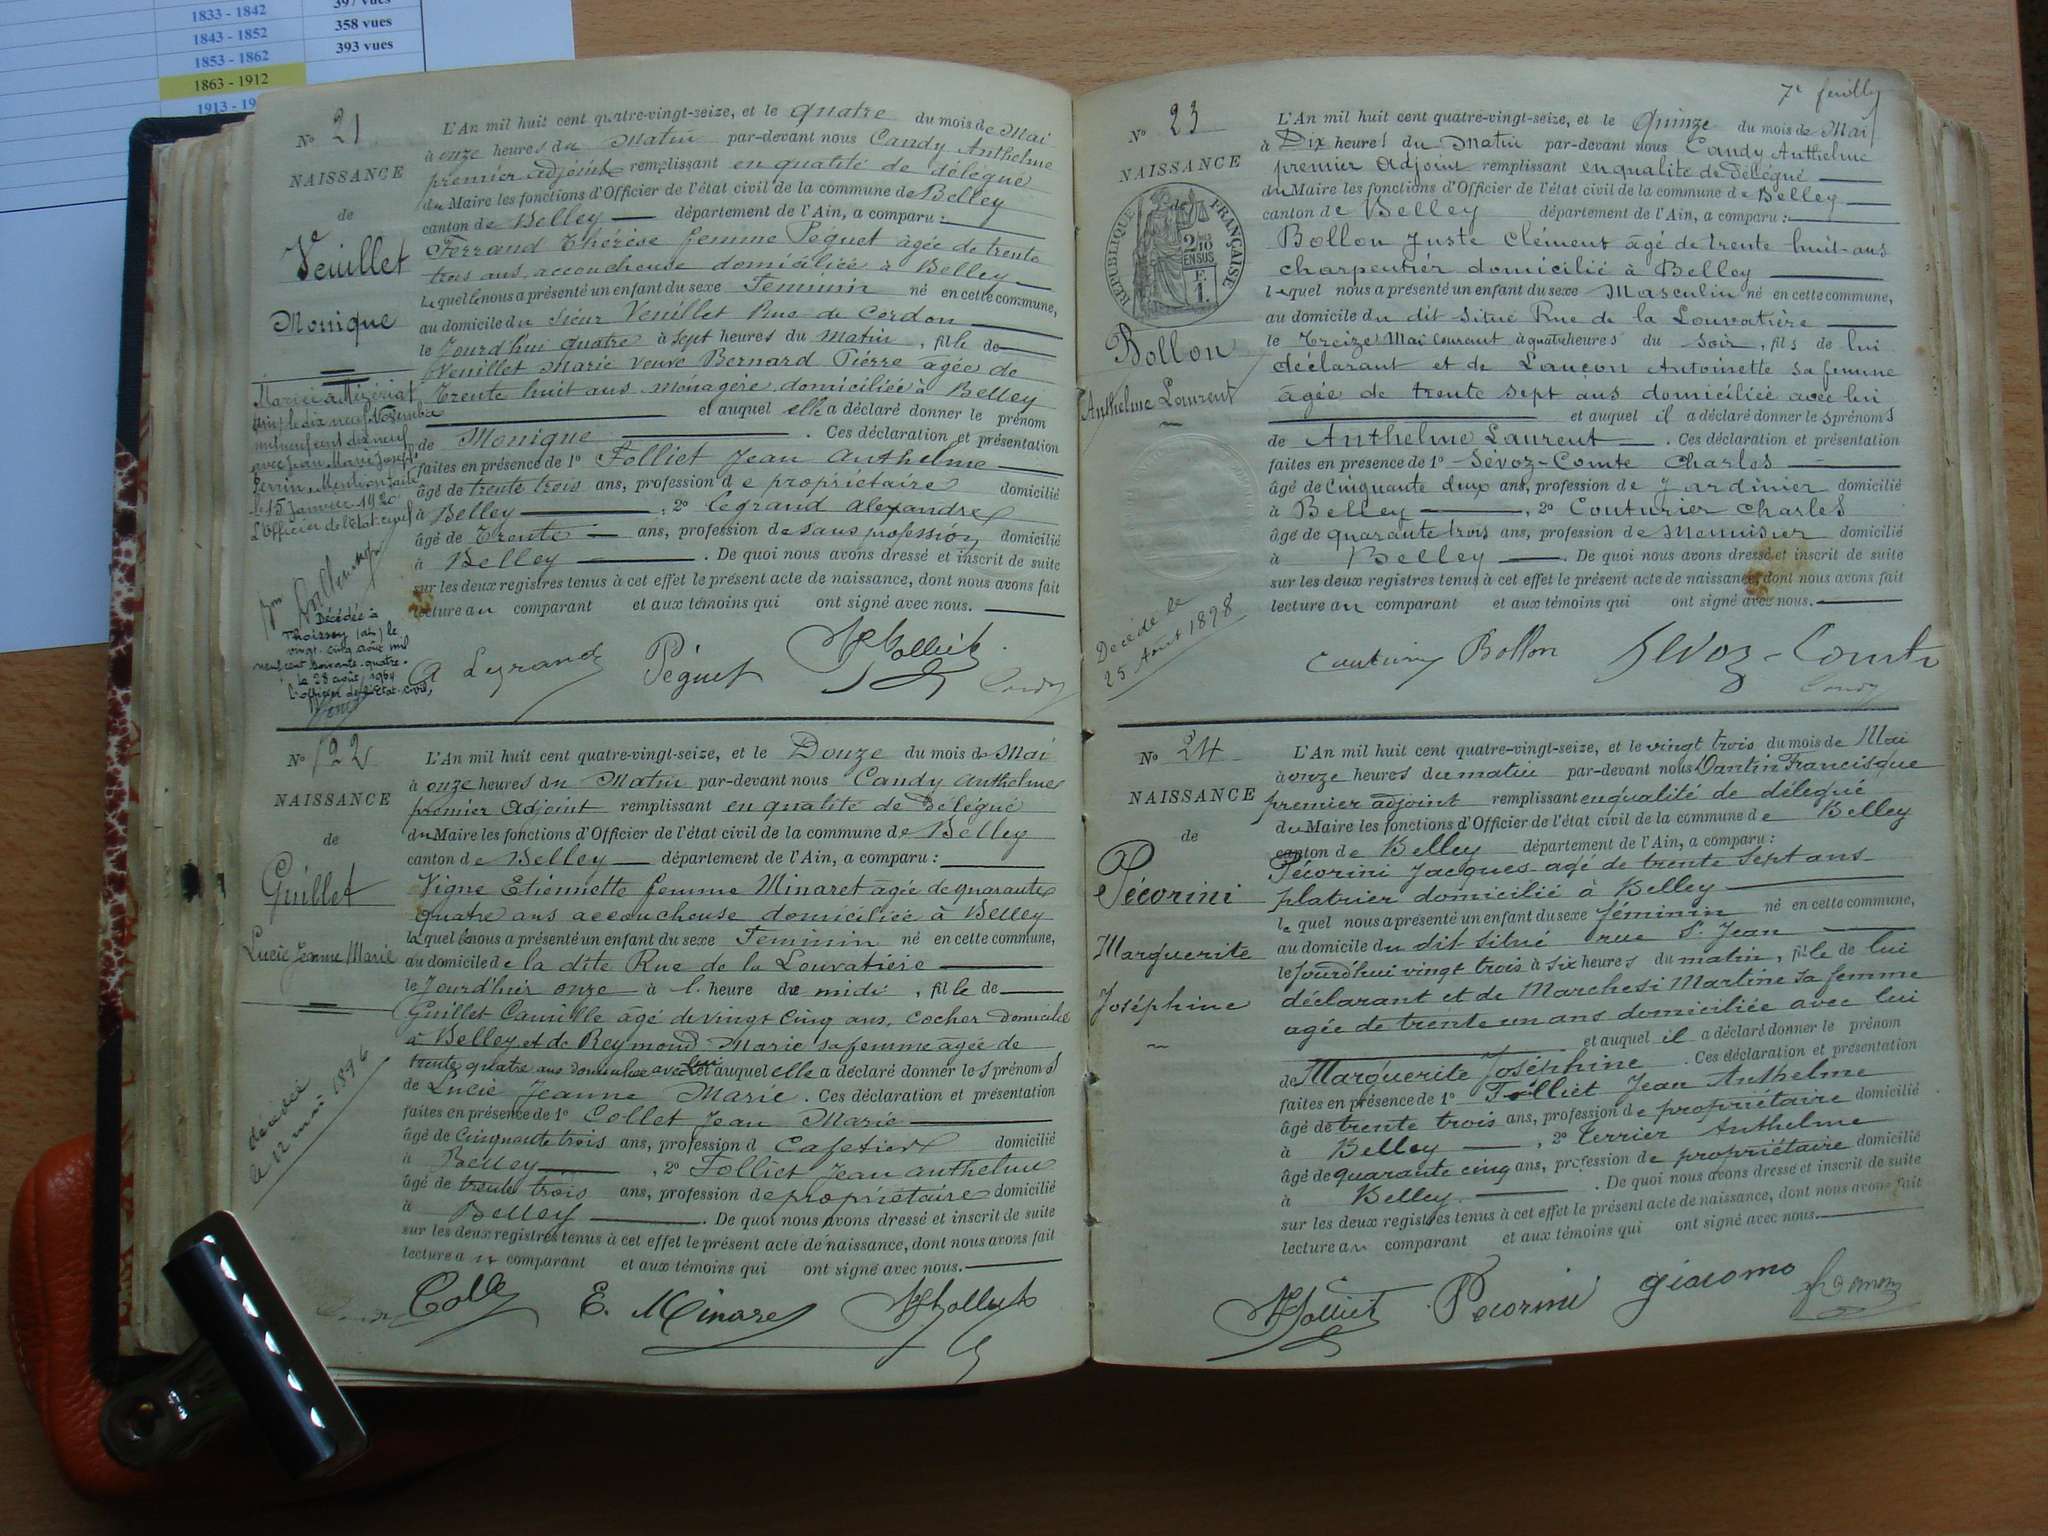 1833 - 1842
397 vues
1843 - 1852
358 vues
1853 - 1862
393 vues
1863 - 1912
1913 - 19
No 21
NAISSANCE
de
Veuillet
Monique
Mariée à Mizériat
(Ain) le dix neuf Novembre
mil neuf cent dix neuf
avec Jean Marie Joseph
Perrin. Mention faite
le 15 Janvier 1920
L'Officier de l'état civil
Décédée à
Thoissey (Ain) le
vingt-cinq août mil
neuf cent soixante-quatre.
le 28 août 1964
l'officier de l'état-civil,
L'An mil huit cent quatre-vingt-seize, et le quatre du mois de Mai
à onze heures du Matin par-devant nous Candy Anthelme
premier adjoint remplissant en qualité de délégué
du Maire les fonctions d'Officier de l'état civil de la commune de Belley
canton de Belley département de l'Ain, a comparu :
Ferrand Thérèse femme Péguet âgée de trente
trois ans, accoucheuse domiciliée à Belley
lequel nous a présenté un enfant du sexe Féminin né en cette commune,
au domicile du Sieur Veuillet Rue de Cordon
le Jourd'hui quatre à sept heures du matin, fille de
Veuillet Marie veuve Bernard Pierre âgée de
Trente huit ans ménagère domiciliée à Belley
et auquel elle a déclaré donner le prénom
de Monique . Ces déclaration et présentation
faites en présence de 1o Folliet Jean Anthelme
âgé de trente trois ans, profession de propriétaire domicilié
à Belley , 2o Legrand Alexandre
âgé de Trente ans, profession de sans profession domicilié
à Belley . De quoi nous avons dressé et inscrit de suite
sur les deux registres tenus à cet effet le présent acte de naissance, dont nous avons fait
lecture au comparant et aux témoins qui ont signé avec nous.
A Legrand Péguet Folliet Candy
No 22
NAISSANCE
de
Guillet
Lucie Jeanne Marie
décédée
le 12 mai 1896
L'An mil huit cent quatre-vingt-seize, et le Douze du mois de Mai
à onze heures du Matin par-devant nous Candy Anthelme
premier Adjoint remplissant en qualité de Délégué
du Maire les fonctions d'Officier de l'état civil de la commune de Belley
canton de Belley département de l'Ain, a comparu :
Vigne Etiennette femme Minaret âgée de quarante
quatre ans accoucheuse domiciliée à Belley
laquelle nous a présenté un enfant du sexe Féminin né en cette commune,
au domicile de la dite Rue de la Louvatière
le Jourd'hui onze à l. heure de midi , fille de
Guillet Camille âgé de vingt cinq ans, cocher domicilié
à Belley et de Reymond Marie sa femme âgée de
trente quatre ans domiciliée avec lui et auquel elle a déclaré donner les prénoms
de Lucie Jeanne Marie . Ces déclaration et présentation
faites en présence de 1o Collet Jean Marie
âgé de Cinquante trois ans, profession d Cafetier domicilié
à Belley , 2o Folliet Jean Anthelme
âgé de trente trois ans, profession de propriétaire domicilié
à Belley . De quoi nous avons dressé et inscrit de suite
sur les deux registres tenus à cet effet le présent acte de naissance, dont nous avons fait
lecture au comparant et aux témoins qui ont signé avec nous.
Collet E. Minaret Folliet
7e feuillet
No 23
NAISSANCE
de
REPUBLIQUE FRANÇAISE
2/10 EN SUS
F 1.
Bollon
Anthelme Laurent
Décédé le
25 Août 1898
L'An mil huit cent quatre-vingt-seize, et le Quinze du mois de Mai
à Dix heures du Matin par-devant nous Candy Anthelme
premier Adjoint remplissant en qualité de Délégué
du Maire les fonctions d'Officier de l'état civil de la commune de Belley
canton de Belley département de l'Ain, a comparu :
Bollon Juste Clément âgé de trente huit-ans
charpentier domicilié à Belley
lequel nous a présenté un enfant du sexe Masculin né en cette commune,
au domicile du dit situé Rue de la Louvatière
le Treize Mai courant à quatre heures du soir, fils de lui
déclarant et de Lançon Antoinette sa femme
âgée de trente sept ans domiciliée avec lui
et auquel il a déclaré donner les prénoms
de Anthelme Laurent . Ces déclaration et présentation
faites en présence de 1o Sévoz-Comte Charles
âgé de Cinquante deux ans, profession de Jardinier domicilié
à Belley , 2o Couturier Charles
âgé de quarante trois ans, profession de Menuisier domicilié
à Belley . De quoi nous avons dressé et inscrit de suite
sur les deux registres tenus à cet effet le présent acte de naissance, dont nous avons fait
lecture au comparant et aux témoins qui ont signé avec nous.
Couturier Bollon Sevoz-Comte
Candy
No 24
NAISSANCE
de
Pécorini
Marguerite
Joséphine
L'An mil huit cent quatre-vingt-seize, et le vingt trois du mois de Mai
à onze heures du matin par-devant nous Dantin Francisque
premier adjoint remplissant en qualité de délégué
du Maire les fonctions d'Officier de l'état civil de la commune de Belley
canton de Belley département de l'Ain, a comparu :
Pécorini Jacques agé de trente sept ans
platrier domicilié à Belley
lequel nous a présenté un enfant du sexe féminin né en cette commune,
au domicile du dit situé rue St Jean
le Jourd'hui vingt trois à six heures du matin, fille de lui
déclarant et de Marchesi Martine sa femme
agée de trente un ans domiciliée avec lui
et auquel il a déclaré donner le prénom
de Marguerite Joséphine . Ces déclaration et présentation
faites en présence de 1o Folliet Jean Anthelme
âgé de trente trois ans, profession de propriétaire domicilié
à Belley , 2o Terrier Anthelme
âgé de quarante cinq ans, profession de propriétaire domicilié
à Belley . De quoi nous avons dressé et inscrit de suite
sur les deux registres tenus à cet effet le présent acte de naissance, dont nous avons fait
lecture au comparant et aux témoins qui ont signé avec nous.
Folliet Pecorini giacomo